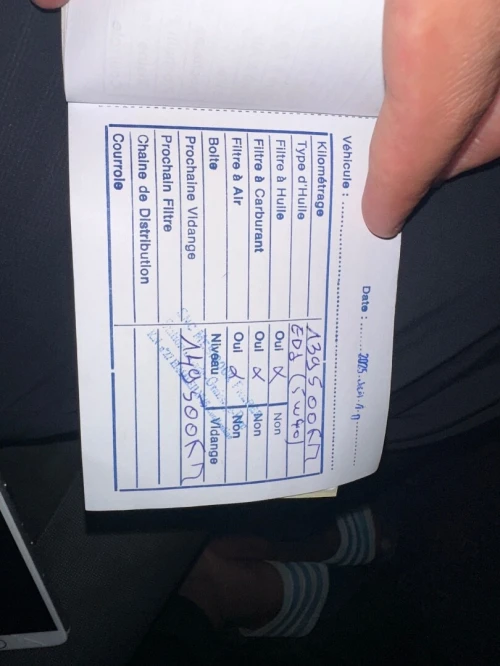 Date : 2025
Véhicule :
Kilométrage 139500KM
Type d'Huile (5W40)
Filtre à Huile Oui Non
Filtre à Carburant Oui Non
Filtre à Air Oui Non
Boite Niveau Vidange
Prochaine Vidange 149500KM
Prochain Filtre
Chaine de Distribution
Courroie